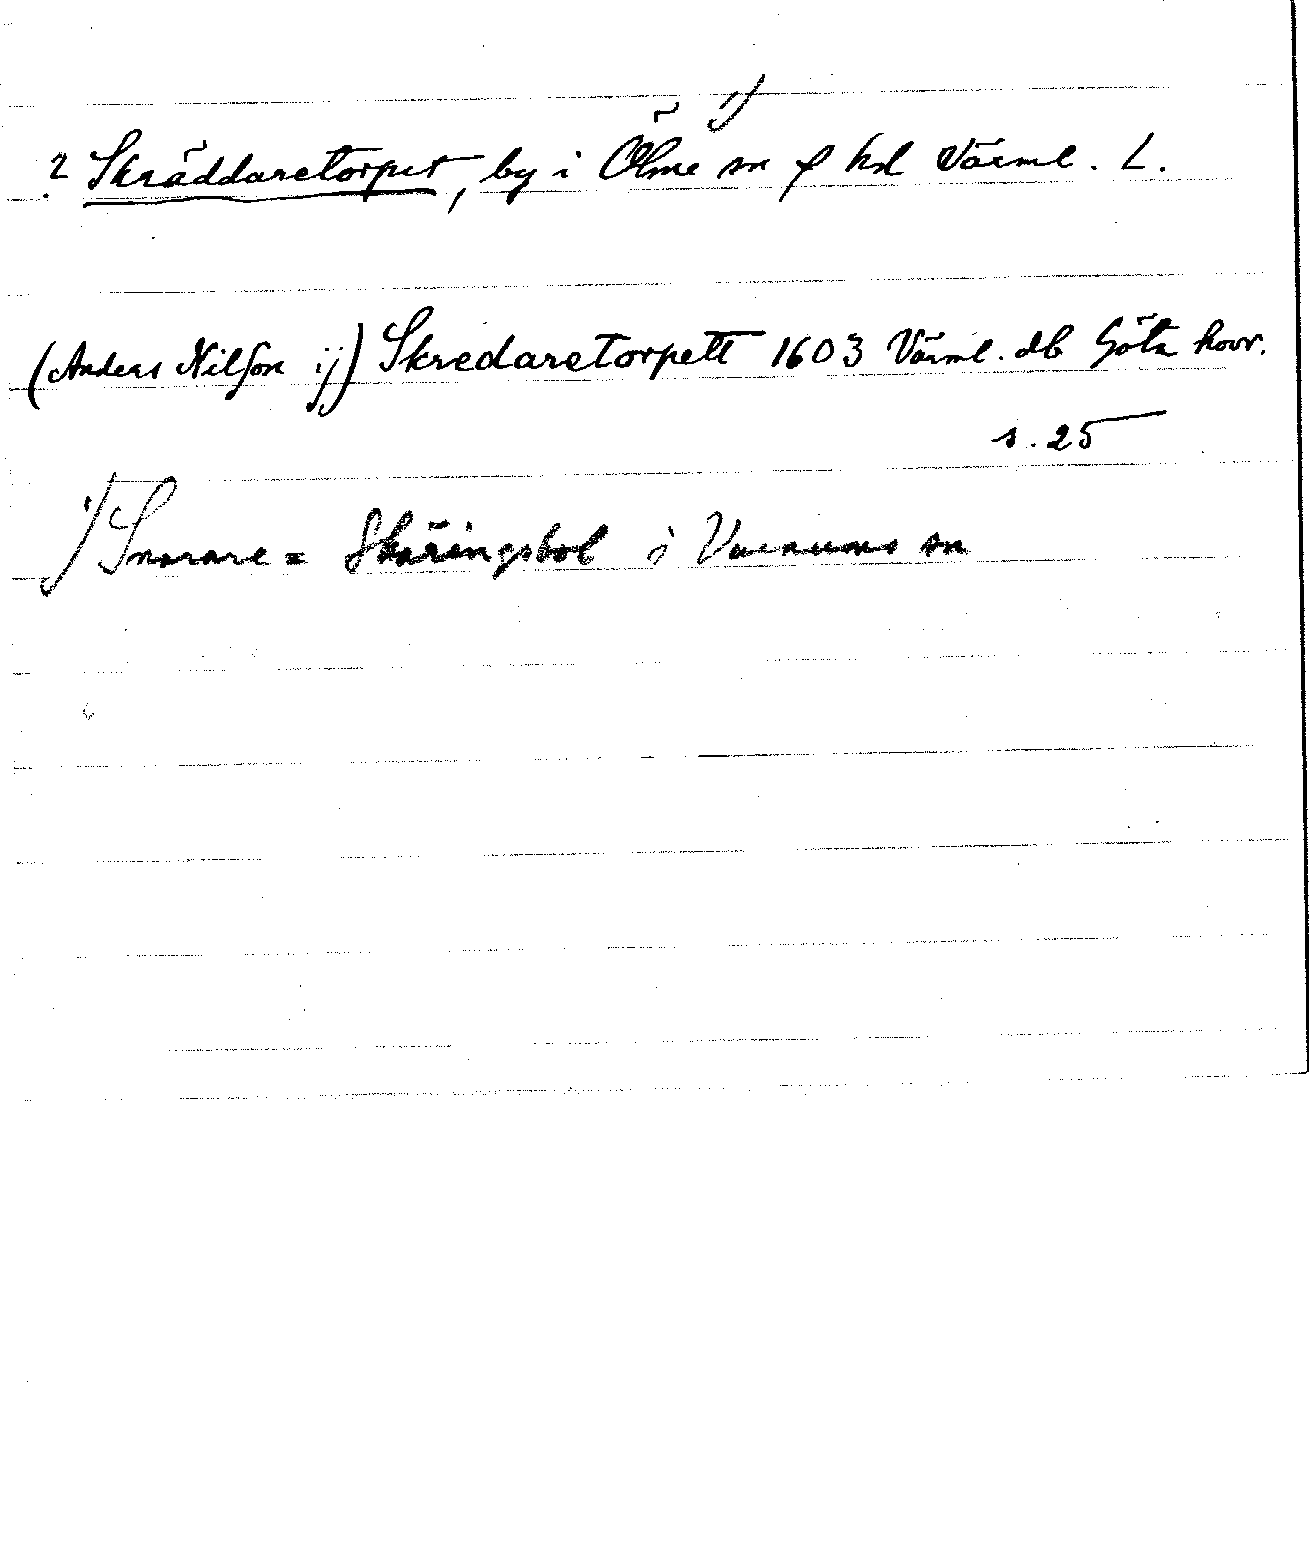 ? Skräddaretorpet, by i Ölme sn o hd Värml. L. 1)
(Anders Nilson ij) Skredaretorpett 1603 Värml. db Göta hovr.
s. 25
1) Snarare = Skäringsbol i Varnums sn